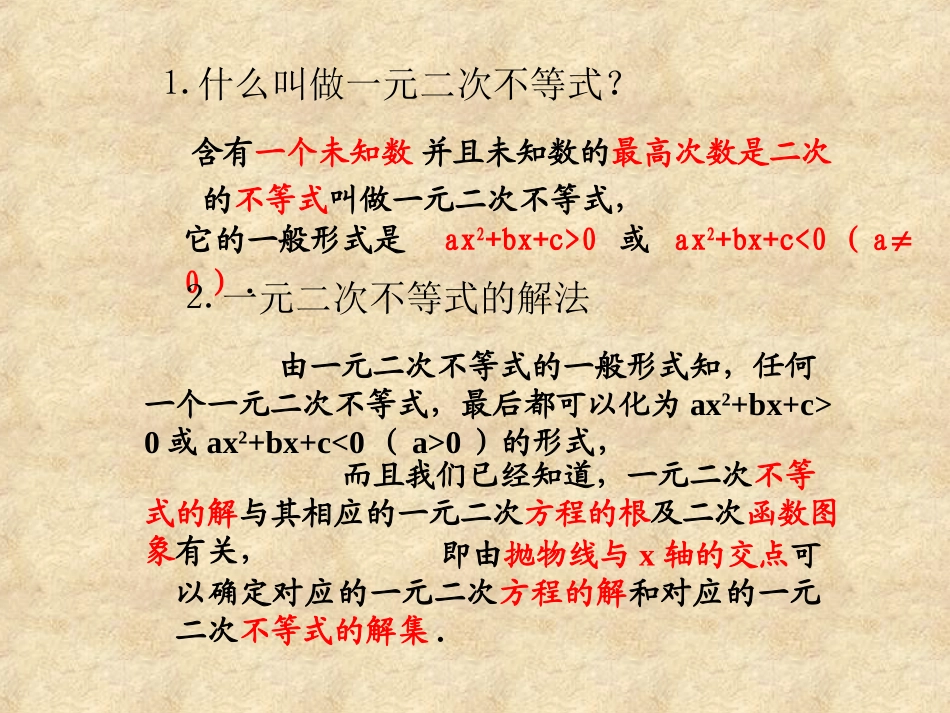 1.什么叫做一元二次不等式？
含有一个未知数 并且未知数的最高次数是二次
的不等式叫做一元二次不等式，
它的一般形式是 ax²+bx+c>0 或 ax²+bx+c<0 （ a≠
0 ）．
2.一元二次不等式的解法
由一元二次不等式的一般形式知，任何
一个一元二次不等式，最后都可以化为 ax²+bx+c>
0 或 ax²+bx+c<0 （ a>0 ）的形式，
而且我们已经知道，一元二次不等
式的解与其相应的一元二次方程的根及二次函数图
象有关，
即由抛物线与 x 轴的交点可
以确定对应的一元二次方程的解和对应的一元
二次不等式的解集 .